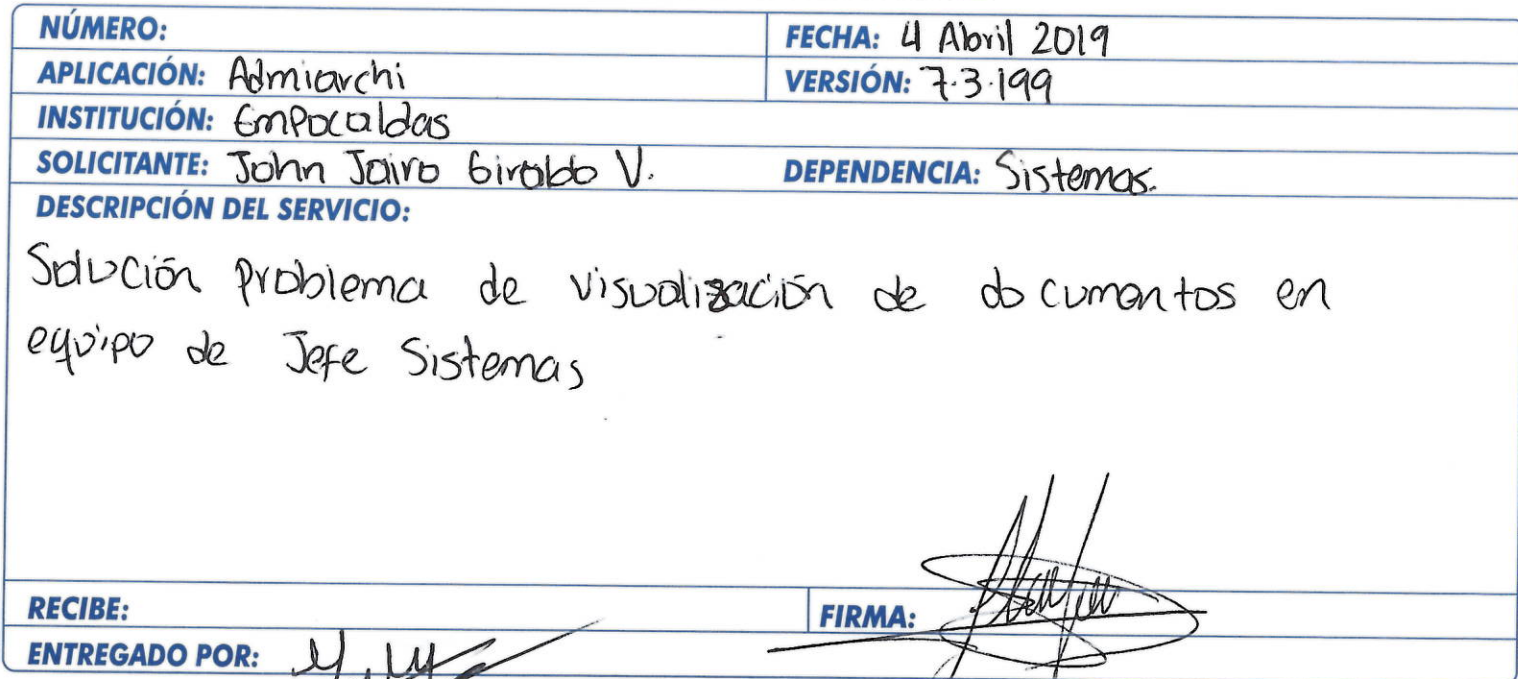 NÚMERO: FECHA: 4 Abril 2019
APLICACIÓN: Admiarchi VERSIÓN: 7.3.199
INSTITUCIÓN: Empocaldas
SOLICITANTE: John Jairo Giraldo V. DEPENDENCIA: Sistemas.
DESCRIPCIÓN DEL SERVICIO:
Solución problema de visualización de documentos en
equipo de Jefe Sistemas
RECIBE: FIRMA:
ENTREGADO POR: